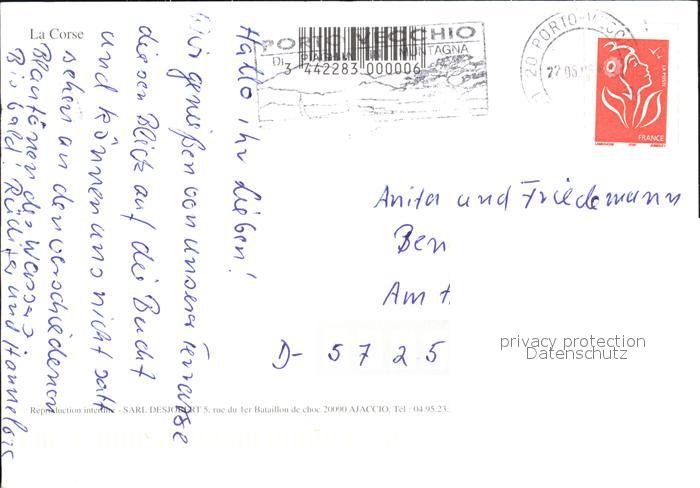 La Corse
Hallo ihr Lieben!
Wir genießen von unserer Terrasse
diesen Blick auf die Bucht
und können uns nicht satt
sehen an den verschiedenen
Blautönen des Wassers
Bis bald! Rüdiger und Hannelore
PORTO VECCHIO
DI MUNTAGNA
3 442283 000006
20 PORTO-VECC
22 05
LA POSTE
FRANCE
Anita und Friedemann
Ben
Am
D- 5725
privacy protection
Datenschutz
Reproduction interdite - SARL DESJOBERT 5, rue du 1er Bataillon de choc 20090 AJACCIO, Tél : 04.95.23